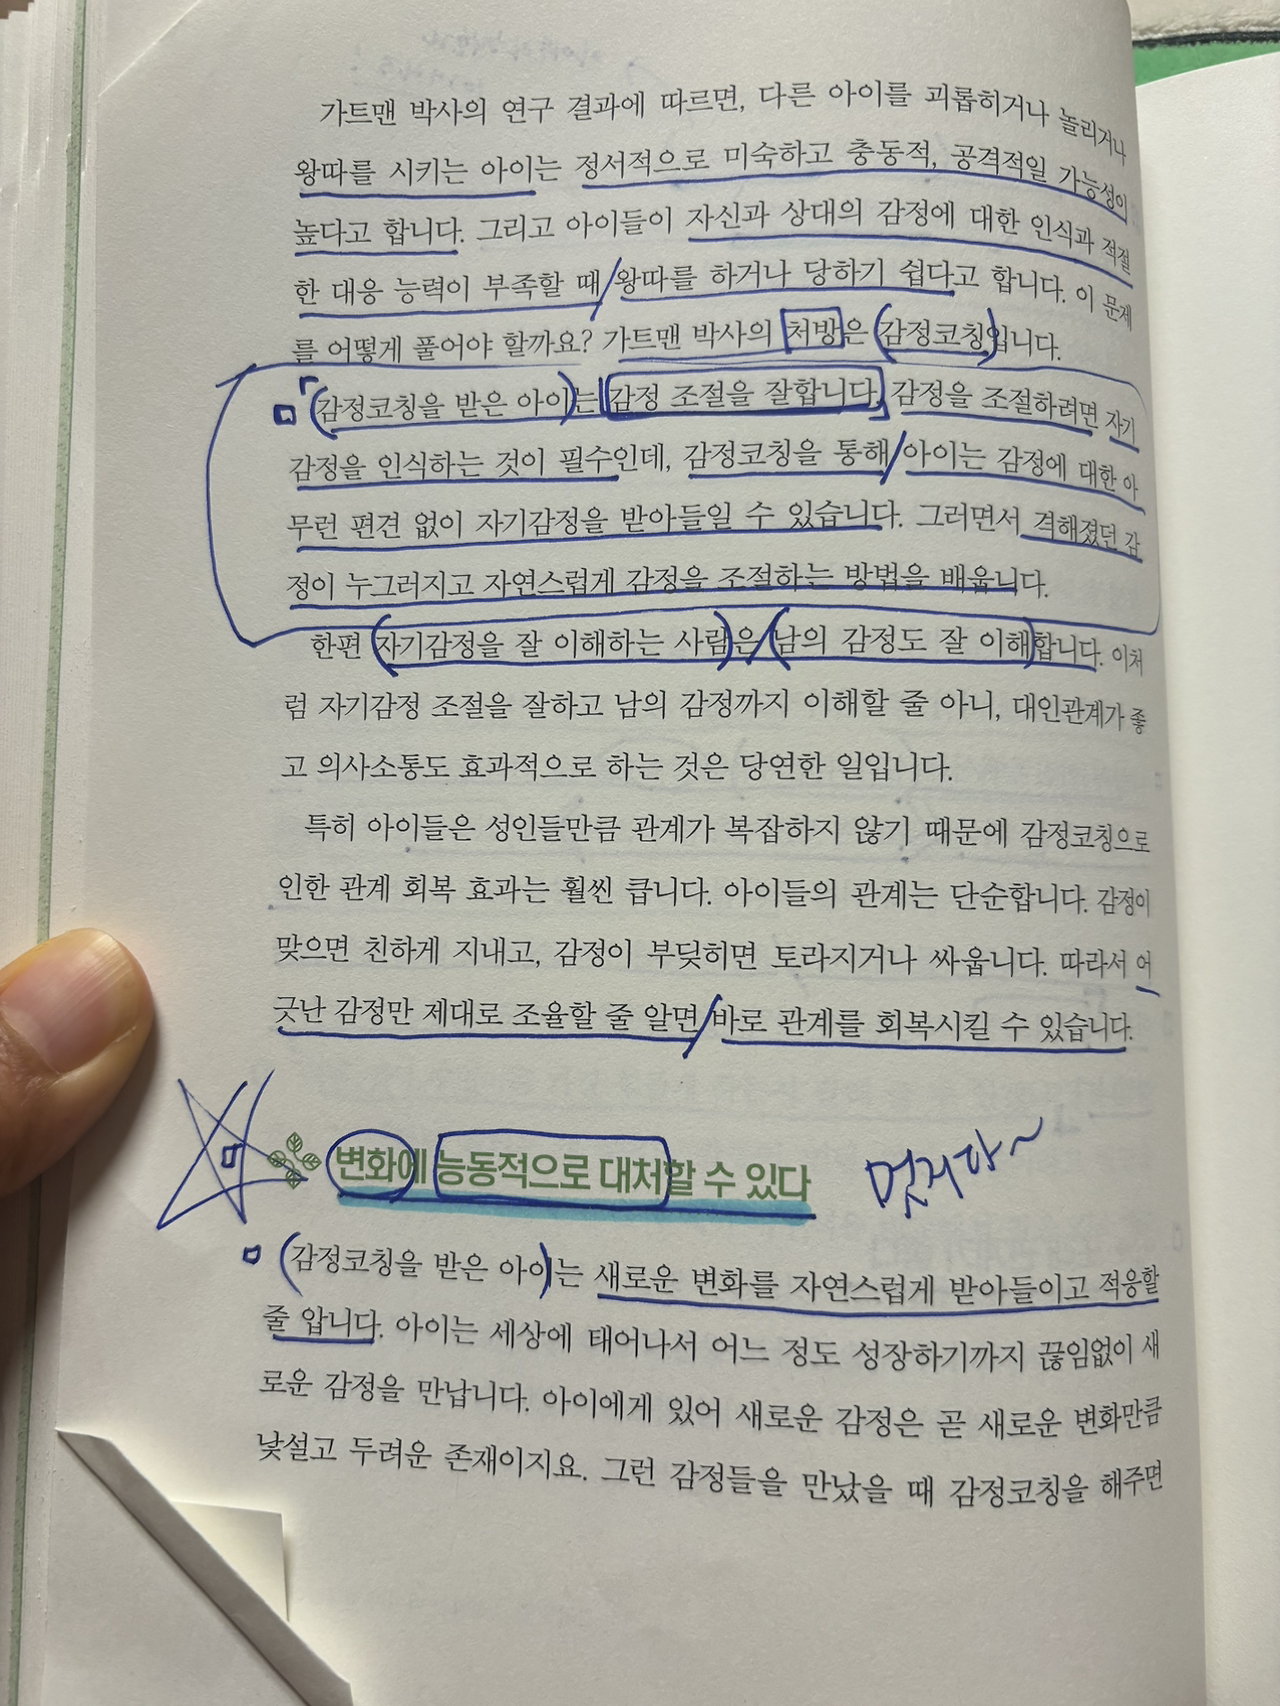 가트맨 박사의 연구 결과에 따르면, 다른 아이를 괴롭히거나 놀리거나
왕따를 시키는 아이는 정서적으로 미숙하고 충동적, 공격적일 가능성이
높다고 합니다. 그리고 아이들이 자신과 상대의 감정에 대한 인식과 적절
한 대응 능력이 부족할 때 왕따를 하거나 당하기 쉽다고 합니다. 이 문제
를 어떻게 풀어야 할까요? 가트맨 박사의 처방은 감정코칭입니다.
감정코칭을 받은 아이는 감정 조절을 잘합니다. 감정을 조절하려면 자기
감정을 인식하는 것이 필수인데, 감정코칭을 통해 아이는 감정에 대한 아
무런 편견 없이 자기감정을 받아들일 수 있습니다. 그러면서 격해졌던 감
정이 누그러지고 자연스럽게 감정을 조절하는 방법을 배웁니다.
한편 자기감정을 잘 이해하는 사람은 남의 감정도 잘 이해합니다. 이처
럼 자기감정 조절을 잘하고 남의 감정까지 이해할 줄 아니, 대인관계가 좋
고 의사소통도 효과적으로 하는 것은 당연한 일입니다.
특히 아이들은 성인들만큼 관계가 복잡하지 않기 때문에 감정코칭으로
인한 관계 회복 효과는 훨씬 큽니다. 아이들의 관계는 단순합니다. 감정이
맞으면 친하게 지내고, 감정이 부딪히면 토라지거나 싸웁니다. 따라서 어
긋난 감정만 제대로 조율할 줄 알면 바로 관계를 회복시킬 수 있습니다.
변화에 능동적으로 대처할 수 있다
멋지다~
감정코칭을 받은 아이는 새로운 변화를 자연스럽게 받아들이고 적응할
줄 압니다. 아이는 세상에 태어나서 어느 정도 성장하기까지 끊임없이 새
로운 감정을 만납니다. 아이에게 있어 새로운 감정은 곧 새로운 변화만큼
낯설고 두려운 존재이지요. 그런 감정들을 만났을 때 감정코칭을 해주면